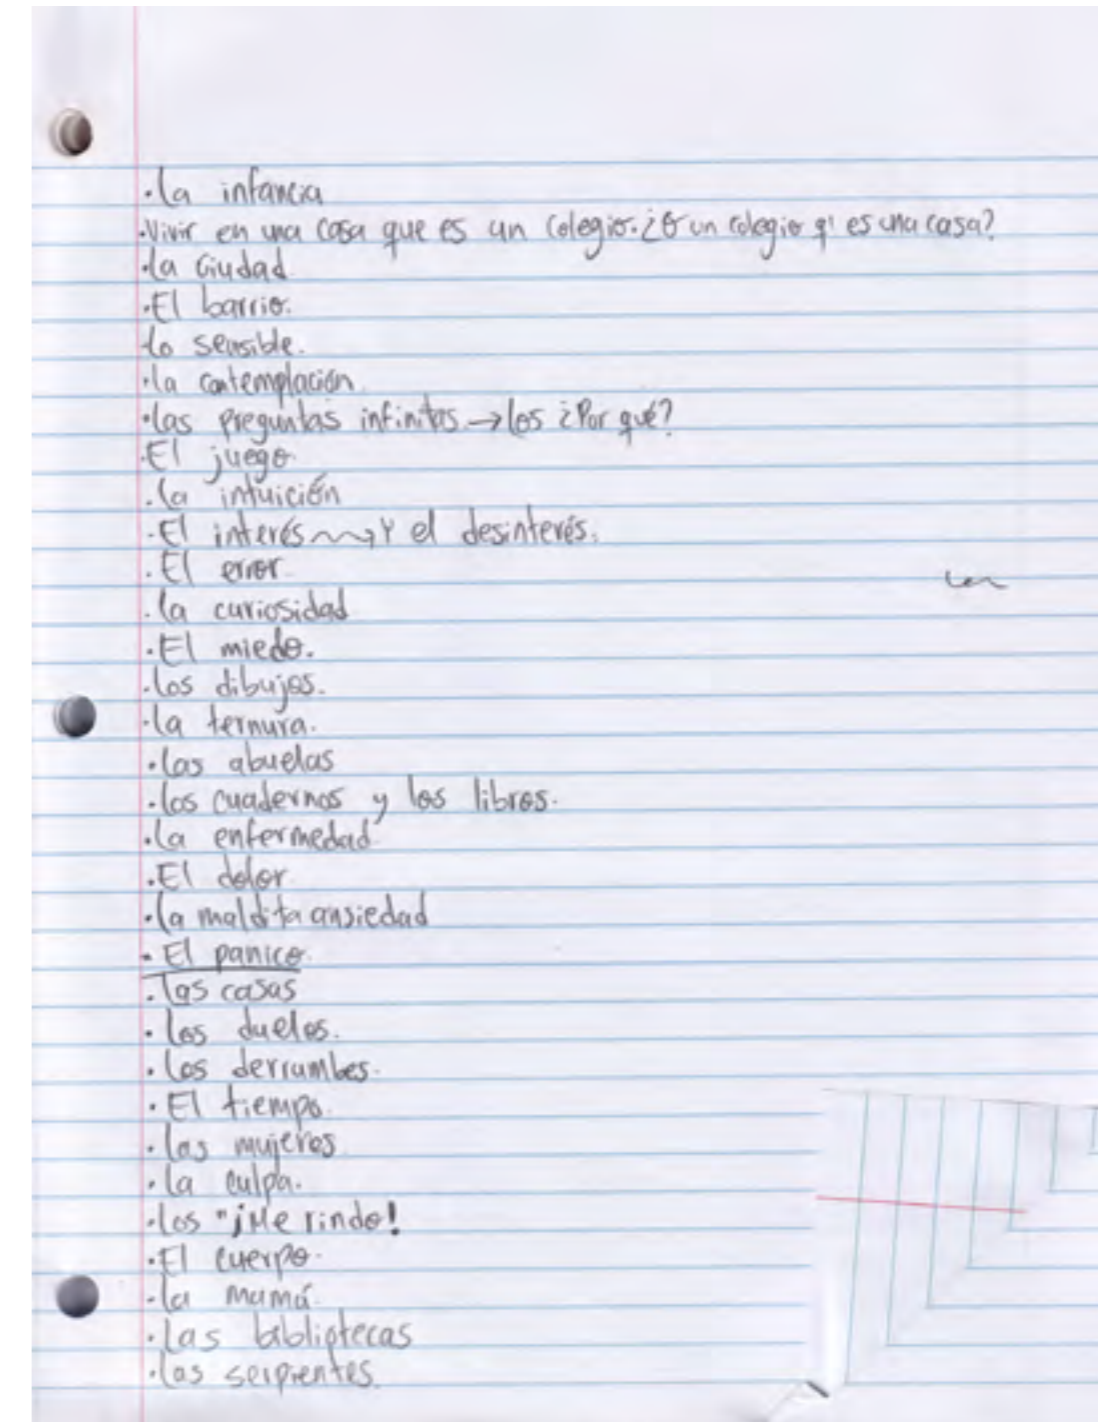 ·La infancia
·Vivir en una casa que es un colegio. ¿O un colegio q' es una casa?
·La ciudad
·El barrio.
·Lo sensible.
·La contemplación.
·Las preguntas infinitas → los ¿Por qué?
·El juego.
·La intuición
·El interés → Y el desinterés.
·El error.
·La curiosidad
·El miedo.
·Los dibujos.
·La ternura.
·Las abuelas
·Los cuadernos y los libros.
·La enfermedad
·El dolor.
·La maldita ansiedad
·El panico.
·Las casas
·Los duelos.
·Los derrumbes.
·El tiempo.
·Las mujeres
·La culpa.
·Los "¡Me rindo!
·El cuerpo.
·La mamá.
·Las bibliotecas
·Las serpientes.